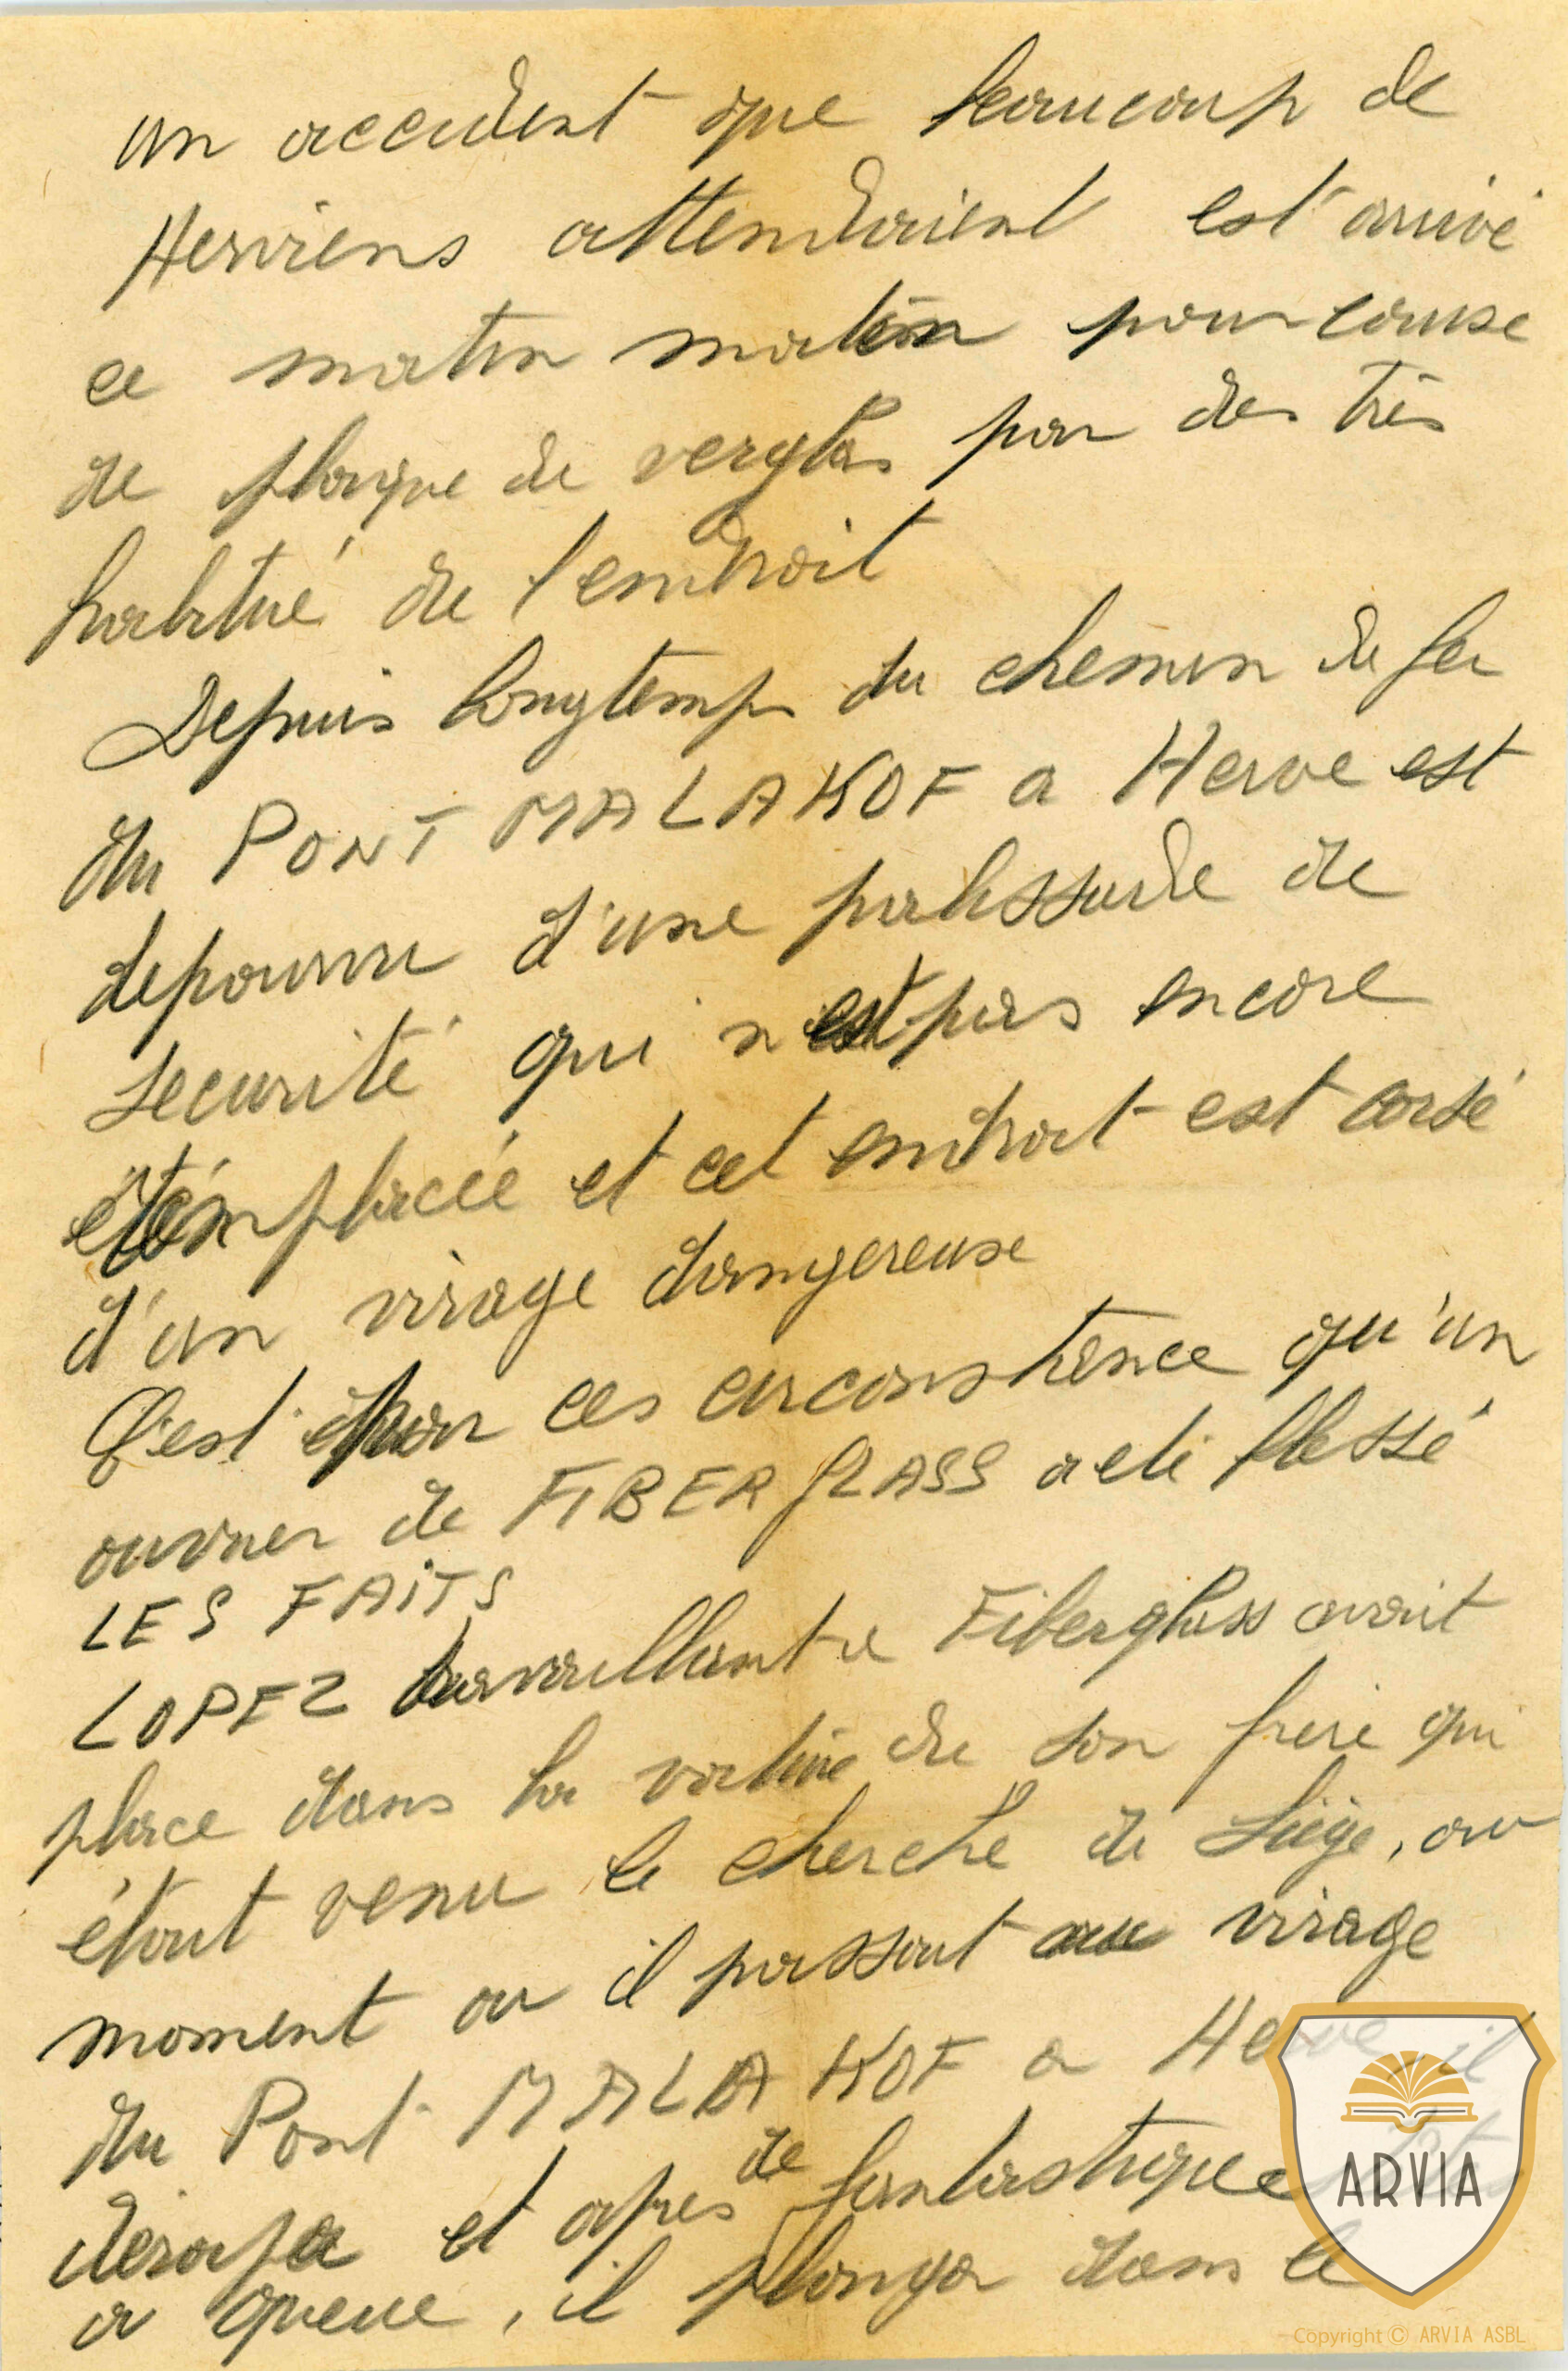 un accident que beaucoup de
Herviens attendaient est arrivé
ce matin matin pour cause
de plaque de verglas par des très
habitué de l'endroit
Depuis longtemp du chemin de fer
du PONT MALAKOF a Herve est
depourvu d'une palissade de
securité qui n'est pas encore
été placée et cet endroit est corsé
d'un virage dangereuse
C'est par ces circonstence qu'un
ouvrier de FIBERGLASS a eté blessé
LES FAITS
LOPEZ travaillant a Fiberglass avait
place dans la voiture de son frere qui
étout venu le cherché de Liège, au
moment ou il passait au virage
du Pont MALAKOF a Herve il
dérapa et apres de fantastique
a queue, il plonga dans le
ARVIA
Copyright © ARVIA ASBL